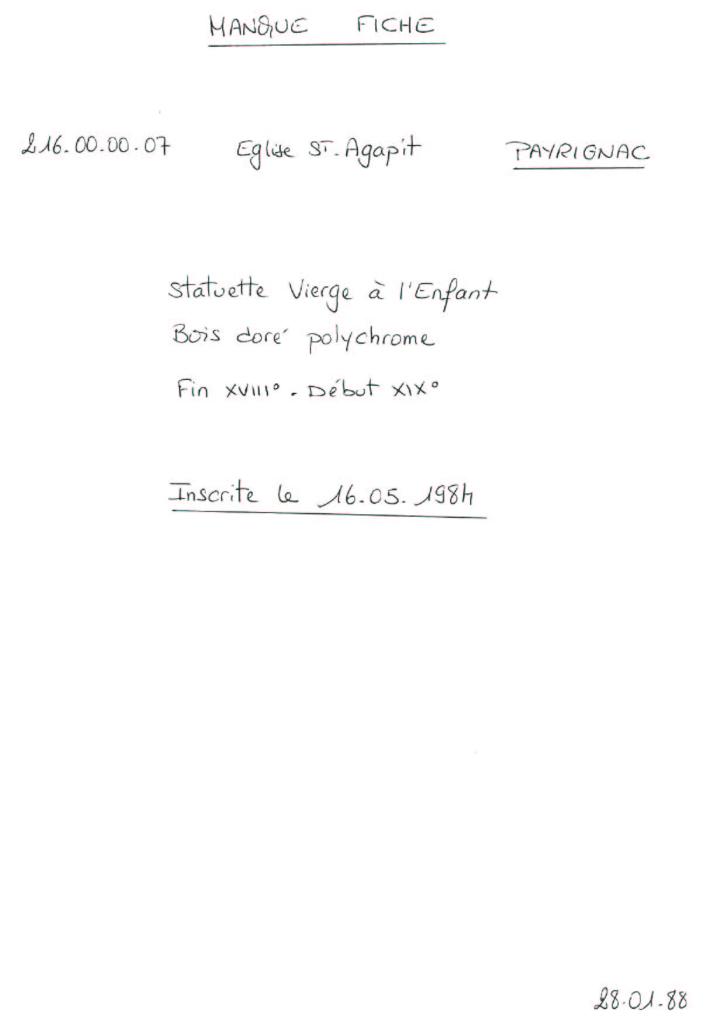 MANQUE FICHE
216.00.00.07 Eglise ST. Agapit PAYRIGNAC
Statuette Vierge à l'Enfant
Bois doré polychrome
Fin XVIII° . Début XIX°
Inscrite le 16.05.1984
28.01.88